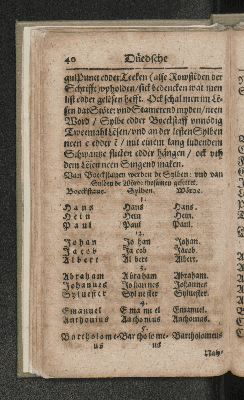 40 Düedsche
gu/Punct edder Teeken (alse Rowstüden der
Schrifft) upholden / sick bedencken wat men
list edder gelesen hefft. Ock schal men im Le-
sen dat Stöte- und Stamerend myden / neen
Word / Sylbe edder Boeckstaff unnödig
Tweemahl Lesen / und an der lesten Sylben
neen e edder ë / mit einem lang ludendem
Schwantze flicken edder hängen / ock uth
dem Lesen neen Singend maken.
Van Boeckstaven werden de Sylben: und van
Sylben de Wörde thosamen gesettet.
Boeckstave. Sylben. Wörde.
1.
Hans Hans Hans.
Hein Hein Hein.
Paul Paul Paul.
2.
Johan Jo han Johan.
Jacob Ja cob Jacob.
Albert Al bert Albert.
3.
Abraham Abraham Abraham.
Johannes Johannes Johannes.
Sylvester Sylvester Sylvester.
4.
Emanuel Emanuel Emanuel.
Anthonius Anthonius Anthonius.
5.
Bartholome- Bartholome- Bartholomeus
us us